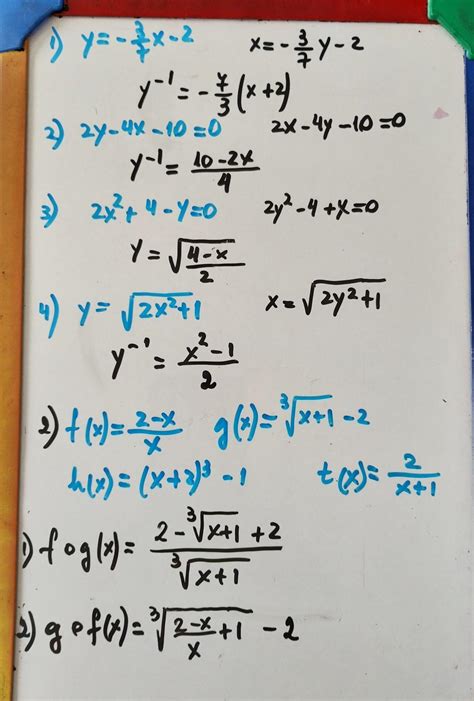 1) y = -3/7 x - 2    x = -3/7 y - 2
y⁻¹ = -7/3 (x+2)
2) 2y - 4x - 10 = 0    2x - 4y - 10 = 0
y⁻¹ = (10-2x)/4
3) 2x² + 4 - y = 0    2y² - 4 + x = 0
y = √((4-x)/2)
4) y = √(2x²+1)    x = √(2y²+1)
y⁻¹ = (x²-1)/2
2) f(x) = (2-x)/x    g(x) = ³√(x+1) - 2
h(x) = (x+2)³ - 1    t(x) = 2/(x+1)
1) f o g(x) = (2 - ³√(x+1) + 2)/(³√(x+1))
2) g o f(x) = ³√((2-x)/x + 1) - 2